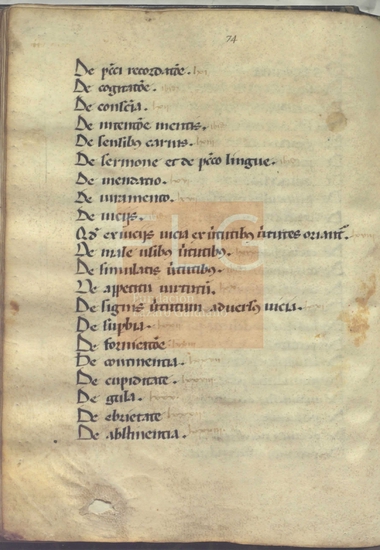 74
De pcci recordatõe.
De cogitatõe.
De consc̃ia.
De intentõe mentis.
De sensibꝫ carnis.
De sermone et de pcc̃o lingue.
De mendatio.
De iuramento.
De uicijs.
Qd̃ ex uicijs uicia ex ũtutibꝫ ũtutes oriant̃.
De male usibꝫ ũtutibꝫ.
De simulatis ũtutibꝫ.
De appetitu uirtutũ.
De signis ũtutum aduersꝰ uicia.
De suꝑbia.
De fornicatõe
De continentia.
De cupiditate.
De gula.
De ebrietate
De abstinentia.
FLG
Fundación